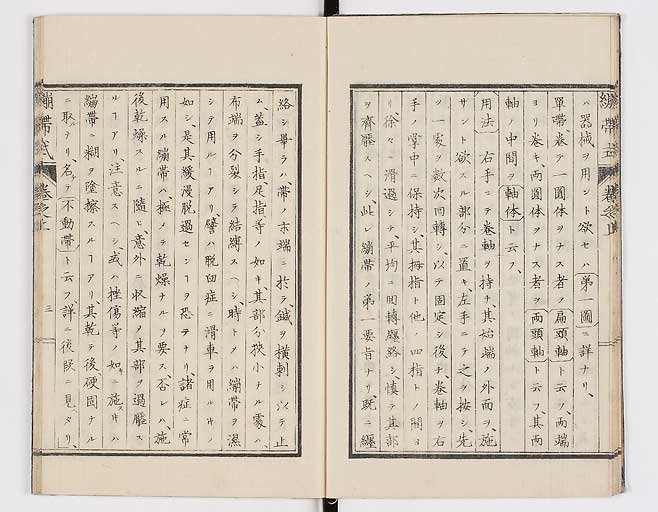 繃帶式 卷之上
ハ器械ヲ用ント欲セハ第一圖ニ詳ナリ、
單帶、卷テ一圓体ヲナス者ヲ扁頭軸ト云フ、兩端
ヨリ卷キ、兩圓体ヲナス者ヲ兩頭軸ト云フ、其兩
軸ノ中間ヲ軸体ト云フ、
用法 右手ニテ卷軸ヲ持チ、其始端ノ外面ヲ、施
サント欲スル部分ニ置キ、左手ニテ之ヲ按シ、先
ツ一處ヲ數次回轉シ、以テ固定シ後チ、卷軸ヲ右
手ノ掌中ニ保持シ、其拇指ト他ノ四指トノ間ヨ
リ徐々ニ滑過シテ、平均ニ回轉纒絡シ、慎テ其部
ヲ齊壓スヘシ、此レ繃帶ノ第一要旨ナリ、既ニ纒
絡シ畢ラハ帶ノ末端ニ於テ、鍼ヲ横刺シ以テ止
ム、蓋シ手指足指等ノ如キ、其部分狹小ナル處ハ、
布端ヲ分裂シテ結縛スヘシ、時トメハ繃帶ヲ濕
シテ用ルヿアリ、譬ハ脱臼症ニ滑車ヲ用ルキノ
如シ、是其緩漫脱過センヿヲ恐テナリ、諸症ニ常
用スル繃帶ハ、極メテ乾燥ナルヲ要ス、否レハ、施
後乾燥スルニ隨ヒ、意外ニ収縮ノ其部ヲ過壓ス
ルヿアリ注意スヘシ、或ハ挫傷等ノ如キニ施スキハ
繃帶ニ糊ヲ塗擦スルヿアリ其乾テ後硬固ナル
ニ取ルナリ、名テ不動帶ト云フ詳ニ後段ニ見ヘタリ、
繃帶式 卷之上 三